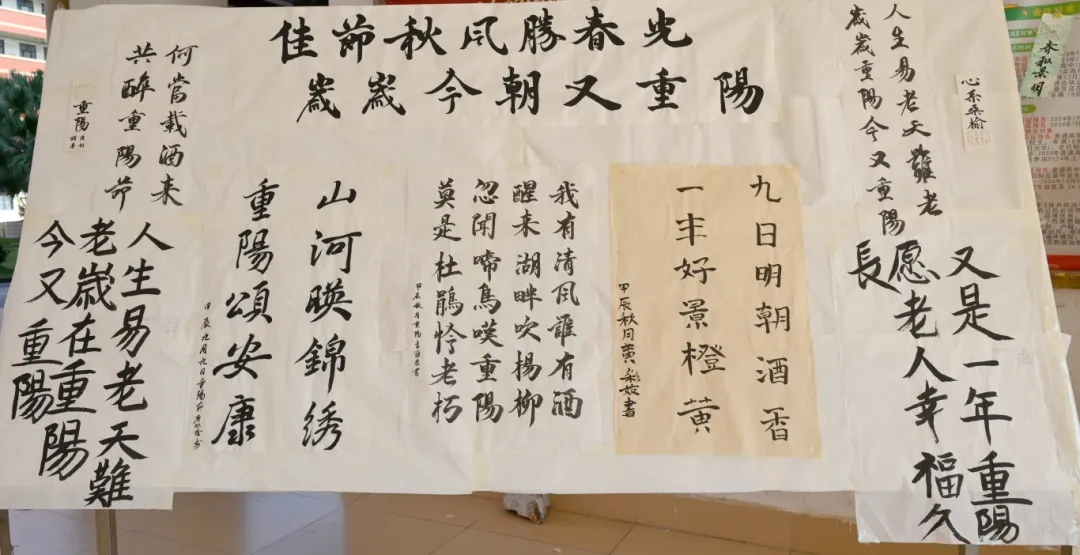 佳節秋風勝春光
歲歲今朝又重陽
人生易老天難老
歲歲重陽今又重陽
心系桑榆
又是一年重陽
愿老人幸福久
長
九日明朝酒香
一年好景橙黄
甲辰秋月黄彩書
我有清風誰有酒
醒来湖畔吹楊柳
忽闻啼鳥嘆重陽
莫是杜鵑怜老朽
甲辰秋月重陽書
山河暎錦綉
重陽頌安康
甲辰九月九日重陽節書
何當載酒来
共醉重陽節
重陽
人生易老天難
老歲在重陽
今又重陽